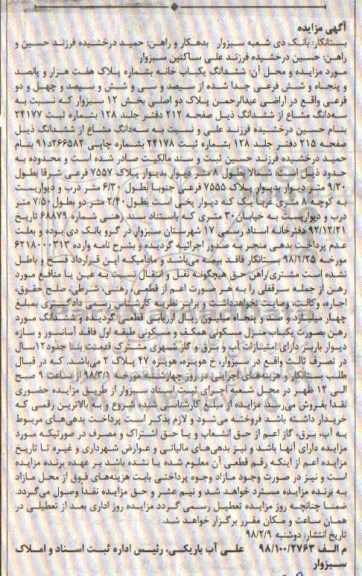 آگهی مزایده
بستانکار: بانک دی شعبه سبزوار بدهکار و راهن: حمید درخشیده فرزند حسین و
راهن: حسین درخشیده فرزند علی ساکنین سبزوار
مورد مزایده و محل آن: ششدانگ یکباب خانه بشماره پلاک هفت هزار و پانصد
و پنجاه و شش فرعی جدا شده از سیصد و سی و شش و سیصد و چهل و دو
فرعی واقع در اراضی عبدالرحمن پلاک دو اصلی بخش ۱۲ سبزوار که نسبت به
سه‌دانگ مشاع از ششدانگ ذیل صفحه ۲۱۲ دفتر جلد ۱۲۸ بشماره ثبت ۲۴۱۷۷
بنام حسین درخشیده فرزند علی و نسبت به سه‌دانگ مشاع از ششدانگ ذیل
صفحه ۲۱۵ دفتر جلد ۱۲۸ بشماره ثبت ۲۴۱۷۸ بشماره چاپی ۲۶۶۵۸۲د۹۱ بنام
حمید درخشیده فرزند حسین ثبت و سند مالکیت صادر شده است و محدوده به
حدود ذیل است: شمالا بطول ۸ متر دیوار بدیوار پلاک ۷۵۵۷ فرعی شرقا بطول
۹/۲۰ متر دیوار بدیوار پلاک ۷۵۵۵ فرعی جنوبا بطول ۶/۳۰ متر درب و دیواریست
به کوچه ۸ متری غربا یک که دیوار پخی است بطول ۲/۴۰ متر دو بطول ۷/۵۰ متر
درب و دیواریست به خیابان ۳۰ متری که باستناد سند رهنی شماره ۶۸۸۷۹ تاریخ
۹۲/۱۲/۲۱ دفترخانه اسناد رسمی ۱۷ شهرستان سبزوار در گرو بانک دی بوده و بعلت
عدم پرداخت بدهی منجر به صدور اجرائیه گردیده و بشرح نامه وارده ۶۲۱۸۰۰۰۳۱۳
مورخه ۹۸/۱/۲۵ بستانکار فاقد بیمه می‌باشد و مادامیکه این قرارداد فسخ و باطل
نشده است مشتری راهن حق هیچگونه نقل و انتقال نسبت به عین یا منافع مورد
رهن از جمله سرقفلی را به هر صورت اعم از قطعی، رهنی، شرطی، صلح حقوق،
اجاره، وکالت، وصایت نخواهدداشت و برابر نظریه کارشناس رسمی دادگستری بمبلغ
چهار میلیارد و پنجاه میلیون ریال ارزیابی قطعی گردیده و ششدانگ مورد
رهن بصورت یکباب منزل مسکونی همکف و مسکونی طبقه اول فاقد آسانسور و سازه
دیوار باربر دارای امتیازات آب و برق و گاز شهری مشترک قدمت بنا حدود ۱۲ سال
در تصرف ثالث واقع در سبزوار، خ هویزه، هویزه ۴۷ پلاک ۲ می‌باشد، که در قبال
طلب بستانکار و هزینه‌های اجرایی در روز چهارشنبه مورخه ۹۸/۳/۱ از ساعت ۹ صبح
الی ۱۲ ظهر در محل شعبه اجرای ثبت اسناد سبزوار از طریق مزایده حضوری
نقدا بفروش می‌رسد. مزایده از مبلغ کارشناسی شده شروع و به بالاترین رقمی که
خریدار داشته باشد فروخته می‌شود و لازم بذکر است پرداخت بدهی‌های مربوط
به آب، برق، گاز اعم از حق انشعاب و یا حق اشتراک و مصرف در صورتیکه مورد
مزایده دارای آنها باشد و نیز بدهی‌های مالیاتی و عوارض شهرداری و غیره تا تاریخ
مزایده اعم از اینکه رقم قطعی آن معلوم شده یا نشده باشد بر عهده برنده مزایده
است و نیز در صورت وجود مازاد وجوه پرداختی بابت هزینه‌های فوق از محل مازاد
به برنده مزایده مسترد خواهد شد و نیم عشر و حق مزایده نقدا وصول می‌گردد.
ضمنا چنانچه روز مزایده تعطیل رسمی گردد مزایده روز اداری بعد از تعطیلی در
همان ساعت و مکان مقرر برگزار خواهد شد.
تاریخ انتشار: دوشنبه ۹۸/۲/۹
م الف ۹۸/۱۰۰/۲۷۶۳ علی آب باریکی، رئیس اداره ثبت اسناد و املاک
سبزوار